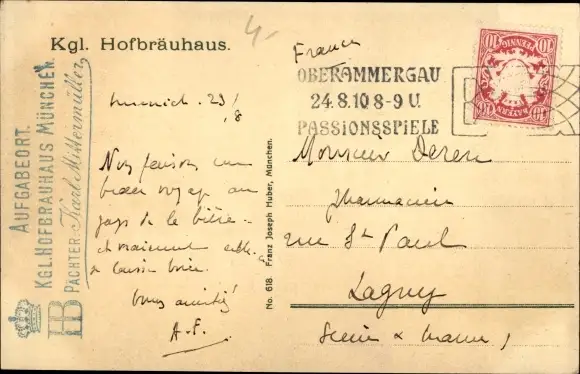 4-
Kgl. Hofbräuhaus.
France
OBERAMMERGAU
24.8.10 8-9 U.
PASSIONSSPIELE
10 PFENNIG 10
BAYERN
AUFGABEORT.
KGL. HOFBRÄUHAUS MÜNCHEN.
PÄCHTER: Karl Mittermüller
HB
Munich. 23/
8
faisons un
voyage au
pays de la bière
et vraiment
se laisse boire.
amitiés
A.F.
No. 618 Franz Joseph Huber, München.
Monsieur Deren
Pharmacien
rue St Paul
Lagny
Seine & Marne